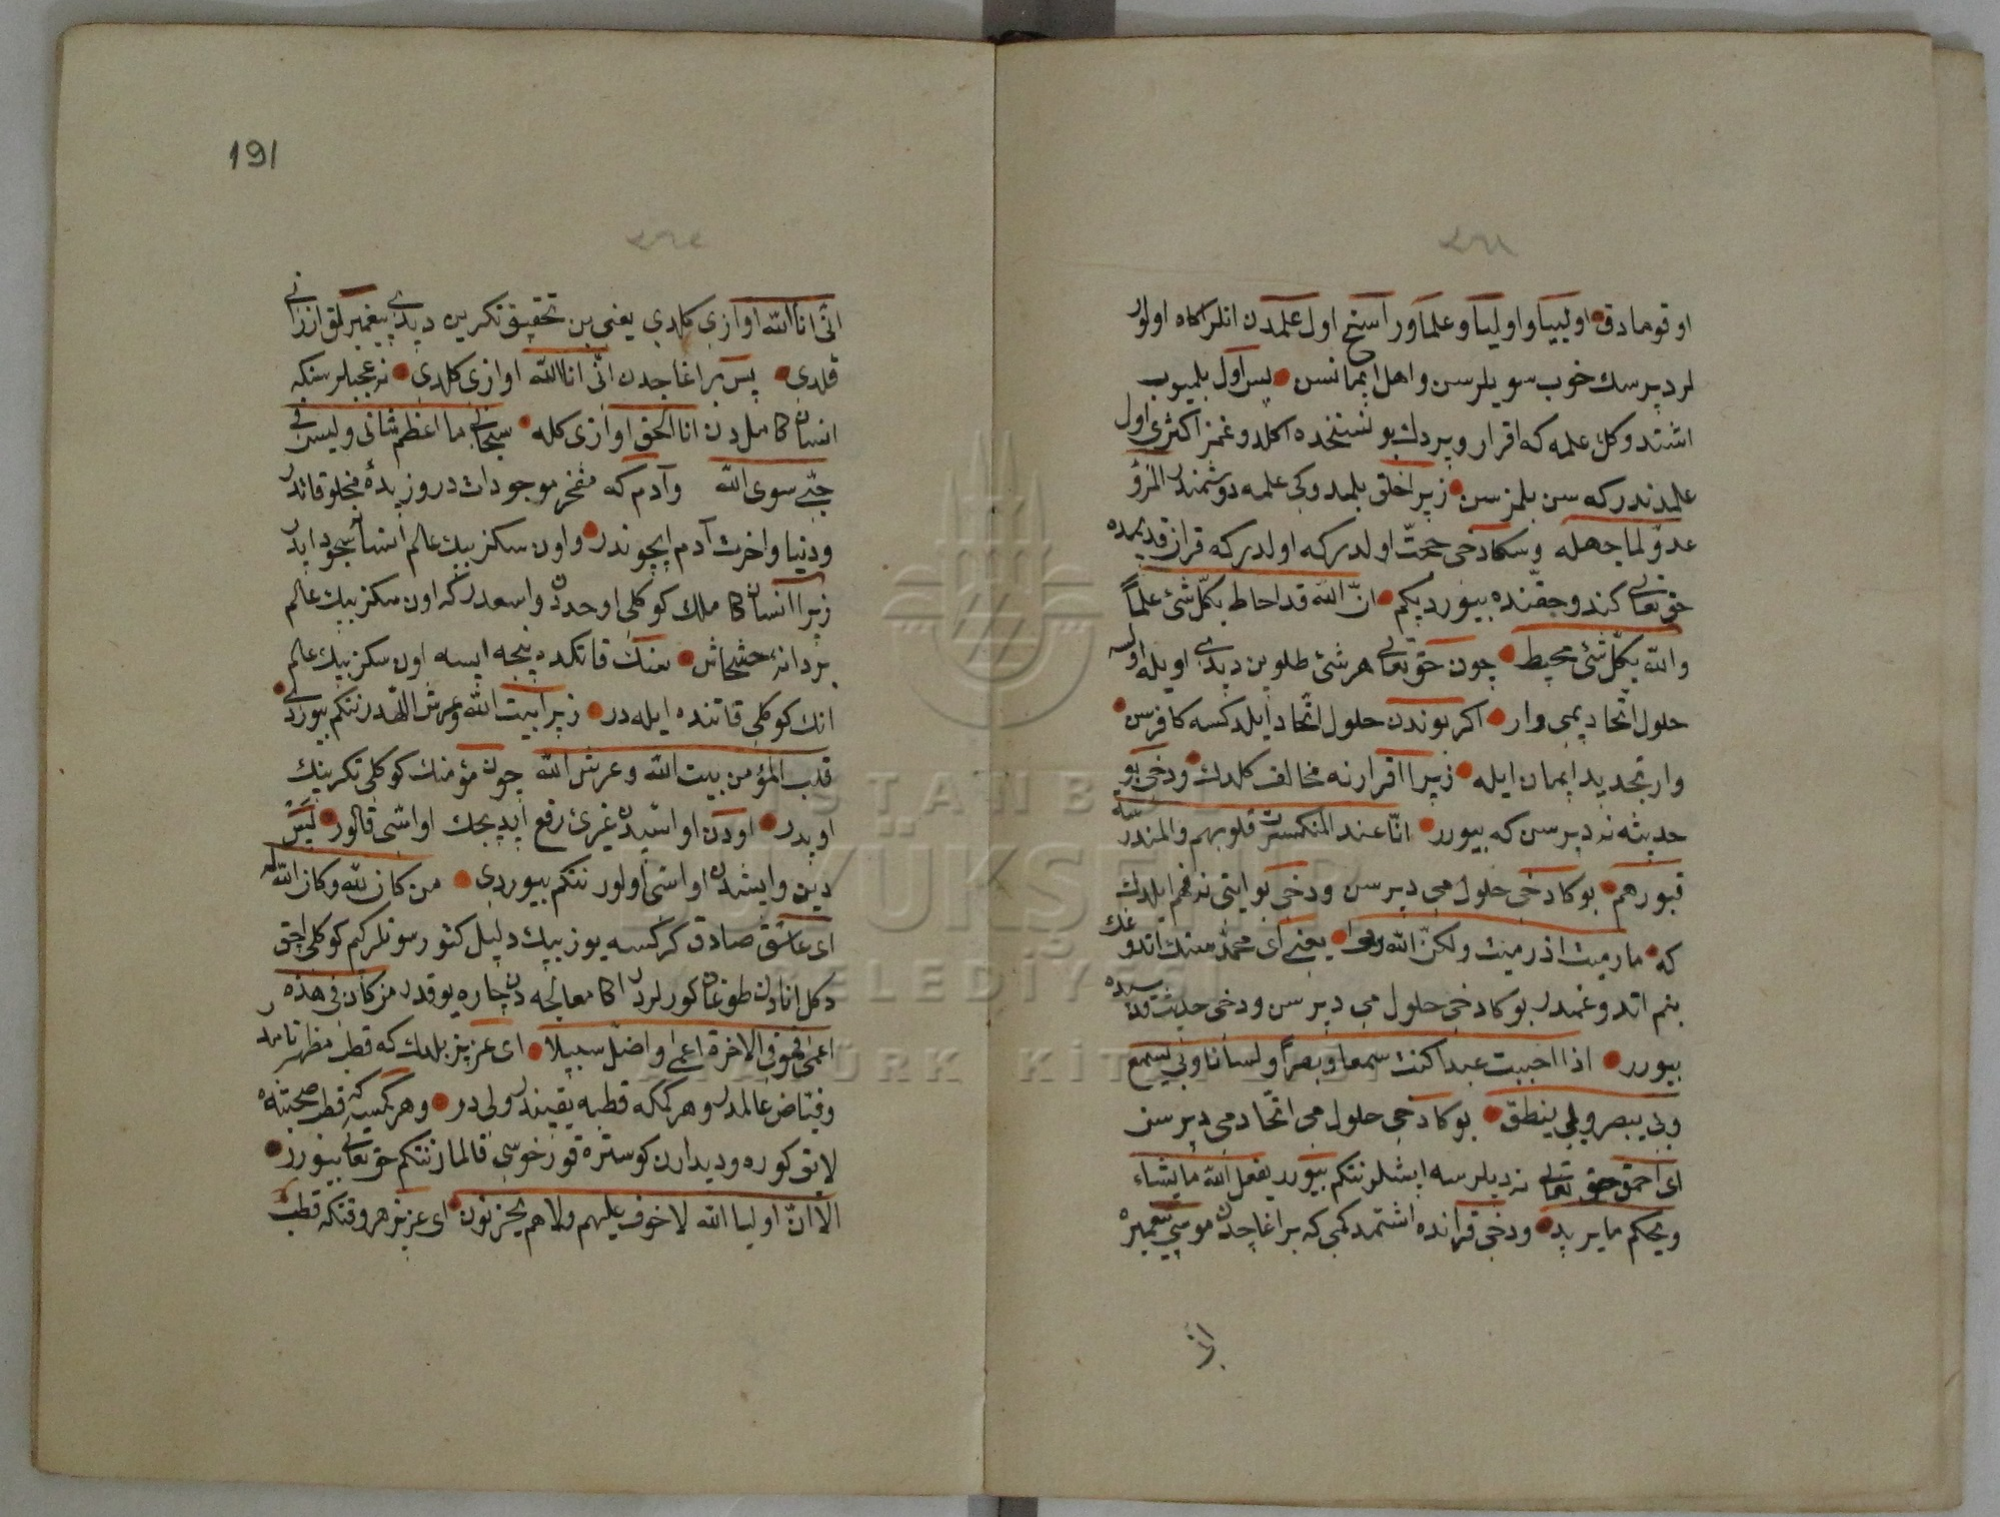 اوقومادق اولییا و اولیا و علما و راسخ اول علمدن انلر اکاه اولور
لر دیرسك خوب سویلرسن و اهل ایمانسن پس اول بلمیوب
اشتدوکل علمه که اقرار ویردك بو نسخده اکلدوغمز اکثری اول
علمدندر که سن بلمزسن زیرا خلق بلمدوکی علمه دوشمندر المرؤ
عدوّ لما جهله و سکا دخی حجّت اولدر که اولدر که قران قدیمده
حق تعالی کندو حقّنده بیوردیکم انّ الله قد احاط بکلّ شئ علماً
والله بکلّ شئ محیط چون حق تعالی هر شئ طلوین دیدی اویله اولسه
حلول اتحاد یمی وار اکر بوندن حلول اتّحاد ایلدکسه کافرسن
وار تجدید ایمان ایله زیرا اقرارنه مخالف کلدك و دخی بو
حدیثه نه دیرسن که بیورر انّا عند المنکسرت قلوبهم والمندرسه
قبورهم بوکا دخی حلول می دیرسن و دخی بو ایتی نه فهم ایلدك
که ما رمیت اذ رمیت ولکنّ الله رمی یعنی ای محمّد سنك اتدوغك
بنم اتدوغمدر بوکا دخی حلول می دیرسن و دخی حدیث قدسیده
بیورر اذا احببت عبدا کنت سمعا و بصراً و لسانا و بی یسمع
و بی یبصر و بی ینطق بوکا دخی حلول می اتّحاد می دیرسن
ای احمق حق تعالی نه دیلرسه ایشلر نتکم بیورر یفعل الله ما یشاء
و یحکم ما یرید و دخی قرانده اشتمدکمی که بر اغاجدن موسی پیغمبره
191
انّی انا الله اوازی کلدی یعنی بن تحقیق تکرین دیدی پیغمبرلق ارزانی
قلدی پس بر اغاجدن انّی انا الله اوازی کلدی نه عجبلرسنکه
انسان کاملدن انا الحق اوازی کله سبحانی ما اعظم شانی و لیس فی
جبّتی سوی الله و آدم که مفخر موجودات در و زبدهٔ مخلوقاتدر
و دنیا و اخرت آدم ایچوندر و اون سکز بیك عالم انسانه سجود ایدر
زیرا انسان کاملك کوکلی اوحدن واسعدر که اون سکز بیك عالم
بر دانه خشخاش سنك قاتکده نیجه ایسه اون سکز بیك عالم
انك کوکلی قاتنده ایله در زیرا بیت الله و عرش اللهدر نتکم بیوردی
قلب المؤمن بیت الله و عرش الله چون مؤمنك کوکلی تکرینك
اویدر اودن او اسیدن غیرئ رفع ایدیجك او اسّی قالور لیس
دین وایشدن او اسّی اولور نتکم بیوردی من کان لله و کان الله له
ای عاشق صادق کر کسه یوز بیك دلیل کتورسونلر کم کوکلی اچق
دکل انادن طوغان کورلردن اکا معالجه دن چاره یوقدر من کان فی هذه
اعمی فهو فی الاخرة اعمی و اضلّ سبیلاً ای عزیز بلدك که قطب مظهر تامدر
و فیّاض عالمدر و هر کمکه قطبه یقیندر ولی در و هر کمسه که قطب صحبتنه
لایق کوره و دیدارن کوستره قورخوسی قالماز نتکم حق تعالی بیورر
الا انّ اولیا الله لا خوف علیهم ولا هم یحزنون ای عزیز هر وقتکه قطب